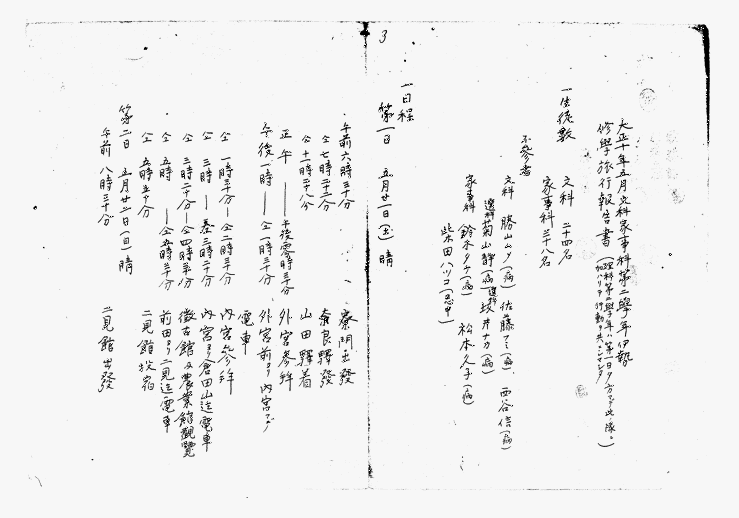 大正十年五月文科家事科第二學年伊勢
修學旅行報告書(理科第二學年ハ第一日夕方マデ此ノ隊ニ
加ハリテ行動ヲ共ニシマシタ)
一生徒數
文科 二十四名
家事科三十八名
不參者
文科 勝山ムク(病) 佐藤フミ(病) 西谷信(病)
選科菊山靜(病)選科坂井ナカ(病)
家事科 鈴木タケ(病) 松本久子(病)
柴田ハツコ(忌中)
3
一日程
第一日 五月廿一日(土)晴
午前六時三十分 寮門出發
仝七時二十三分 奈良驛發
仝十一時二十八分 山田驛着
正午——午後零時三十分 外宮參拜
午後一時——仝一時三十分 外宮前ヨリ内宮マデ
電車
仝一時三十分—仝二時三十分 内宮參拜
仝三時——仝三時二十分 内宮ヨリ倉田山迄電車
仝三時二十分—仝四時半分 徵古館及農業館觀覽
仝五時——仝五時半分 前田ヨリ二見迄電車
仝五時五十分 二見館投宿
第二日 五月廿二日(日)晴
午前八時三十分 二見館出發